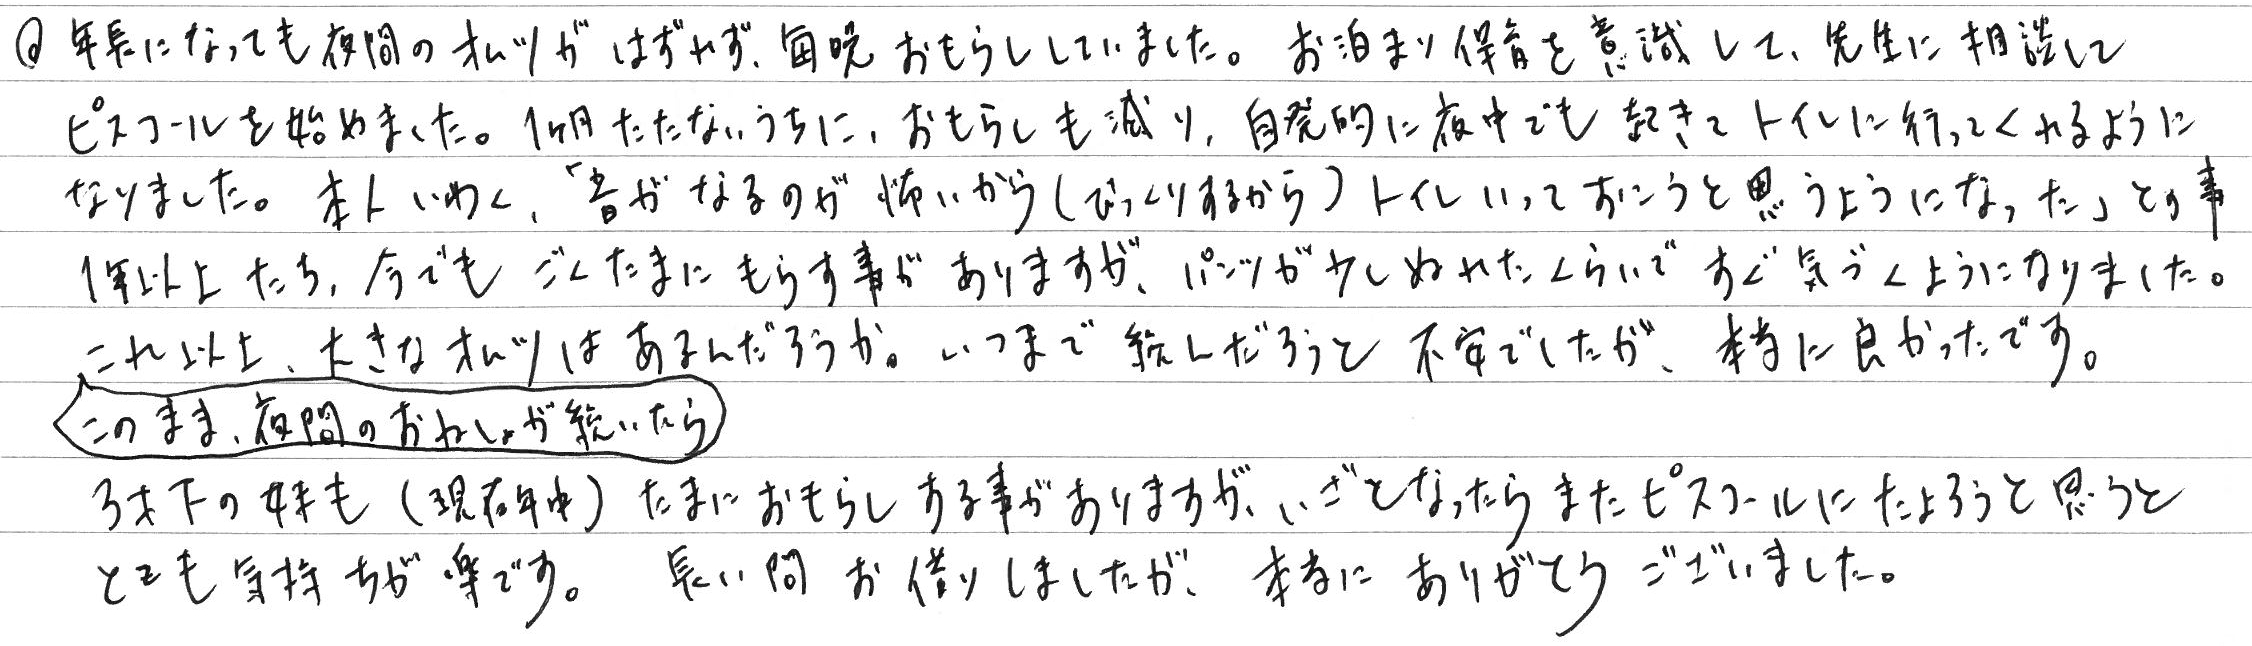 @ 年長になっても夜間のオムツがはずれず、毎晩おもらししていました。お泊まり保育を意識して、先生に相談して
ピスコールを始めました。1ヶ月たたないうちに、おもらしも減り、自発的に夜中でも起きてトイレに行ってくれるように
なりました。本人いわく、「音がなるのが怖いから(びっくりするから)トイレいっておこうと思うようになった」との事
1年以上たち、今でもごくたまにもらす事がありますが、パンツが少しぬれたくらいですぐ気づくようになりました。
これ以上、大きなオムツはあるんだろうか。いつまで続くんだろうと不安でしたが、本当に良かったです。
このまま、夜間のおねしょが続いたら
3才下の妹も(現在年中)たまにおもらしする事がありますが、いざとなったらまたピスコールにたよろうと思うと
とても気持ちが楽です。長い間お借りしましたが、本当にありがとうございました。